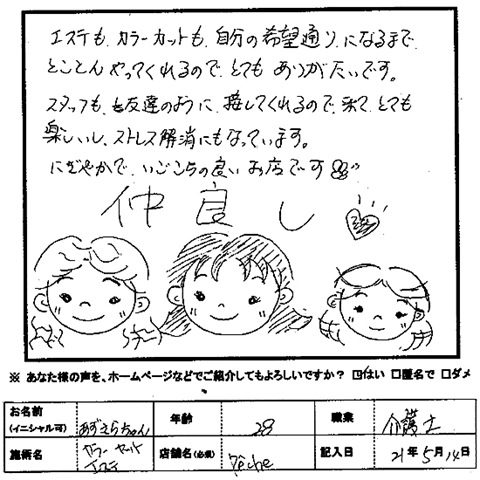 エステも、カラーカットも、自分の希望通りになるまで、
とことんやってくれるので、とてもありがたいです。
スタッフも、友達のように、接してくれるので、来て、とても
楽しいし、ストレス解消にもなっています。
にぎやかで、いごこちの良いお店です
仲良し
※ あなた様の声を、ホームページなどでご紹介してもよろしいですか? ☑はい □匿名で □ダメ
お名前 (イニシャル可) あずえらちゃん 年齢 28 職業 介護士
施術名 カラー カット エステ 店舗名(必須) Pêche 記入日 21年5月14日